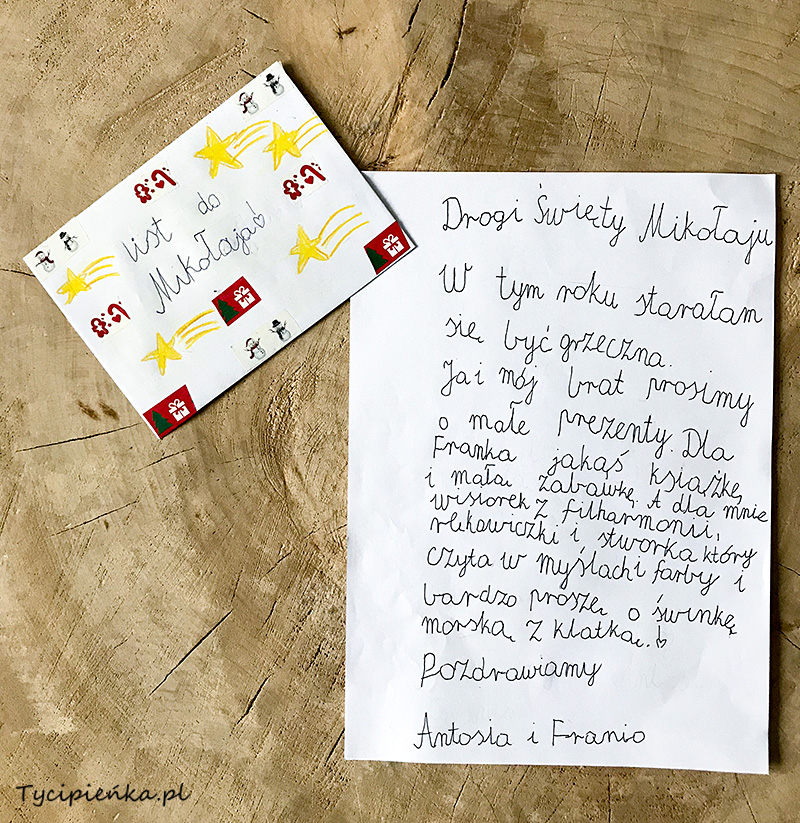 list do
Mikołaja
Drogi Święty Mikołaju
W tym roku starałam
się być grzeczna.
Ja i mój brat prosimy
o małe prezenty. Dla
Franka jakąś książkę
i małą zabawkę. A dla mnie
wisiorek z filharmonii,
rękawiczki i stworka który
czyta w myślach i farby i
bardzo proszę o świnkę
morską z klatką.
Pozdrawiamy
Antosia i Franio
Tycipieńka.pl